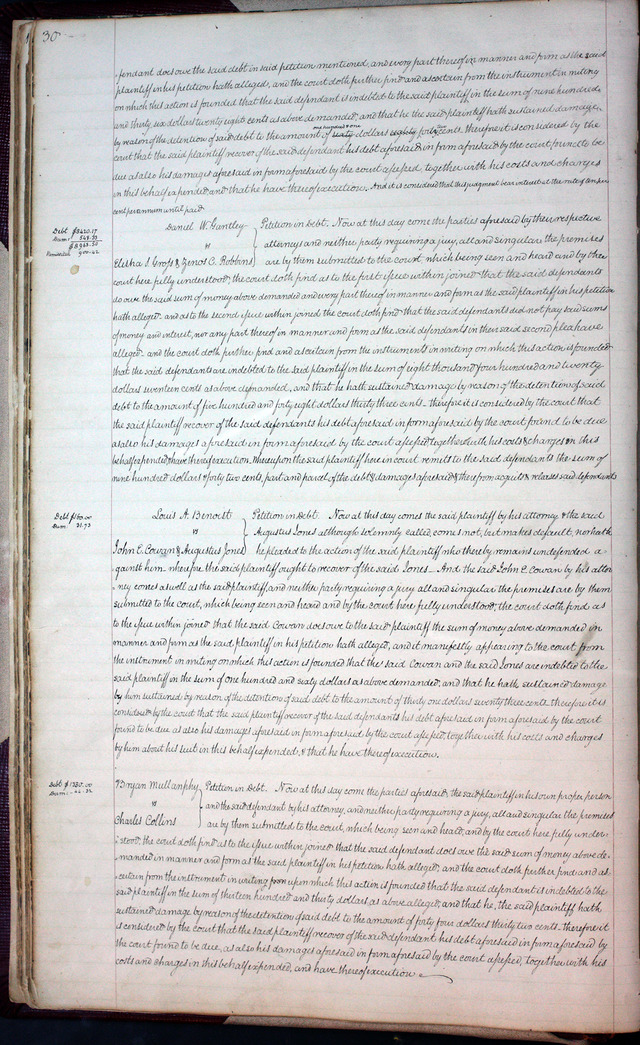 30
fendant does owe the said debt in said petition mentioned, and every part thereof in manner and form as the said
plaintiff in his petition hath alleged, and the court doth further find and ascertain from the instrument in writing
on which this action is founded that the said defendant is indebted to the said plaintiff in the sum of nine hundred
and thirty six dollars twenty eight cents as above demanded, and that he the said plaintiff hath sustained damage
one hundred & one
by reason of the detention of said debt to the amount of sixty dollars eighty four cents. therefore it is considered by the
court that the said plaintiff recover of the said defendant his debt aforesaid in form aforesaid by the court found to be
due as also his damages aforesaid in form aforesaid by the court assessed, together with his costs and charges
in this behalf expended and that he have thereof execution. And it is considered that this judgment bear interest at the rate of ten per
cent per annum until paid
Daniel W. Gantley
vs
Elisha S. Gross & Zenos C. Robbins
Debt $8420.17
Dam: 548.33
$8968.50
Remitted 900.42
Petition in Debt. Now at this day come the parties aforesaid by their respective
attorneys and neither party requiring a jury, all and singular the premises
are by them submitted to the court which being seen and heard and by the
court here fully understood, the court doth find as to the first issue within joined that the said defendants
do owe the said sum of money above demanded and every part thereof in manner and form as the said plaintiff in his petition
hath alleged. and as to the second issue within joined the court doth find that the said defendants did not pay said sums
of money and interest, nor any part thereof in manner and form as the said defendants in their said second plea have
alleged. and the court doth further find and ascertain from the instruments in writing on which this action is founded
that the said defendants are indebted to the said plaintiff in the sum of eight thousand four hundred and twenty
dollars seventeen cents as above demanded, and that he hath sustained damage by reason of the detention of said
debt to the amount of five hundred and forty eight dollars thirty three cents. therefore it is considered by the court that
the said plaintiff recover of the said defendants his debt aforesaid in form aforesaid by the court found to be due
as also his damages aforesaid in form aforesaid by the court assessed, together with his costs & charges in this
behalf expended & have thereof execution. Thereupon the said plaintiff here in court remits to the said defendants the sum of
nine hundred dollars & forty two cents, part and parcel of the debt & damages aforesaid & therefrom acquits & releases said defendants
Louis A. Benoist
vs
John E. Cowan & Augustus Jones
Debt $160.00
Dam: 31.73
Petition in Debt. Now at this day comes the said plaintiff by his attorney & the said
Augustus Jones although solemnly called, comes not, but makes default, nor hath
he pleaded to the action of the said plaintiff who thereby remains undefended a
gainst him. wherefore the said plaintiff ought to recover of the said Jones. And the said John E. Cowan by his attor
ney comes as well as the said plaintiff, and neither party requiring a jury all and singular the premises are by them
submitted to the court, which being seen and heard and by the court here fully understood, the court doth find as
to the issue within joined that the said Cowan does owe to the said plaintiff the sum of money above demanded in
manner and form as the said plaintiff in his petition hath alleged, and it manifestly appearing to the court from
the instrument in writing on which this action is founded that the said Cowan and the said Jones are indebted to the
said plaintiff in the sum of one hundred and sixty dollars as above demanded, and that he hath sustained damage
by him sustained by reason of the detention of said debt to the amount of thirty one dollars seventy three cents. therefore it is
considered by the court that the said plaintiff recover of the said defendants his debt aforesaid in form aforesaid by the court
found to be due as also his damages aforesaid in form aforesaid by the court assessed, together with his costs and charges
by him about his suit in this behalf expended, & that he have thereof execution.
Bryan Mullanphy
vs
Charles Collins
Debt $1330.00
Dam: 44.32
Petition in Debt. Now at this day come the parties aforesaid, the said plaintiff in his own proper person
and the said defendant by his attorney, and neither party requiring a jury, all and singular the premises
are by them submitted to the court, which being seen and heard, and by the court here fully under
stood, the court doth find as to the issue within joined that the said defendant does owe the said sum of money above de
manded in manner and form as the said plaintiff in his petition hath alleged, and the court doth further find and as
certain from the instrument in writing upon which this action is founded that the said defendant is indebted to the
said plaintiff in the sum of thirteen hundred and thirty dollars as above alleged, and that he, the said plaintiff hath
sustained damage by reason of the detention of said debt to the amount of forty four dollars thirty two cents. therefore it
is considered by the court that the said plaintiff recover of the said defendant his debt aforesaid in form aforesaid by
the court found to be due, as also his damages aforesaid in form aforesaid by the court assessed, together with his
costs and charges in this behalf expended, and have thereof execution